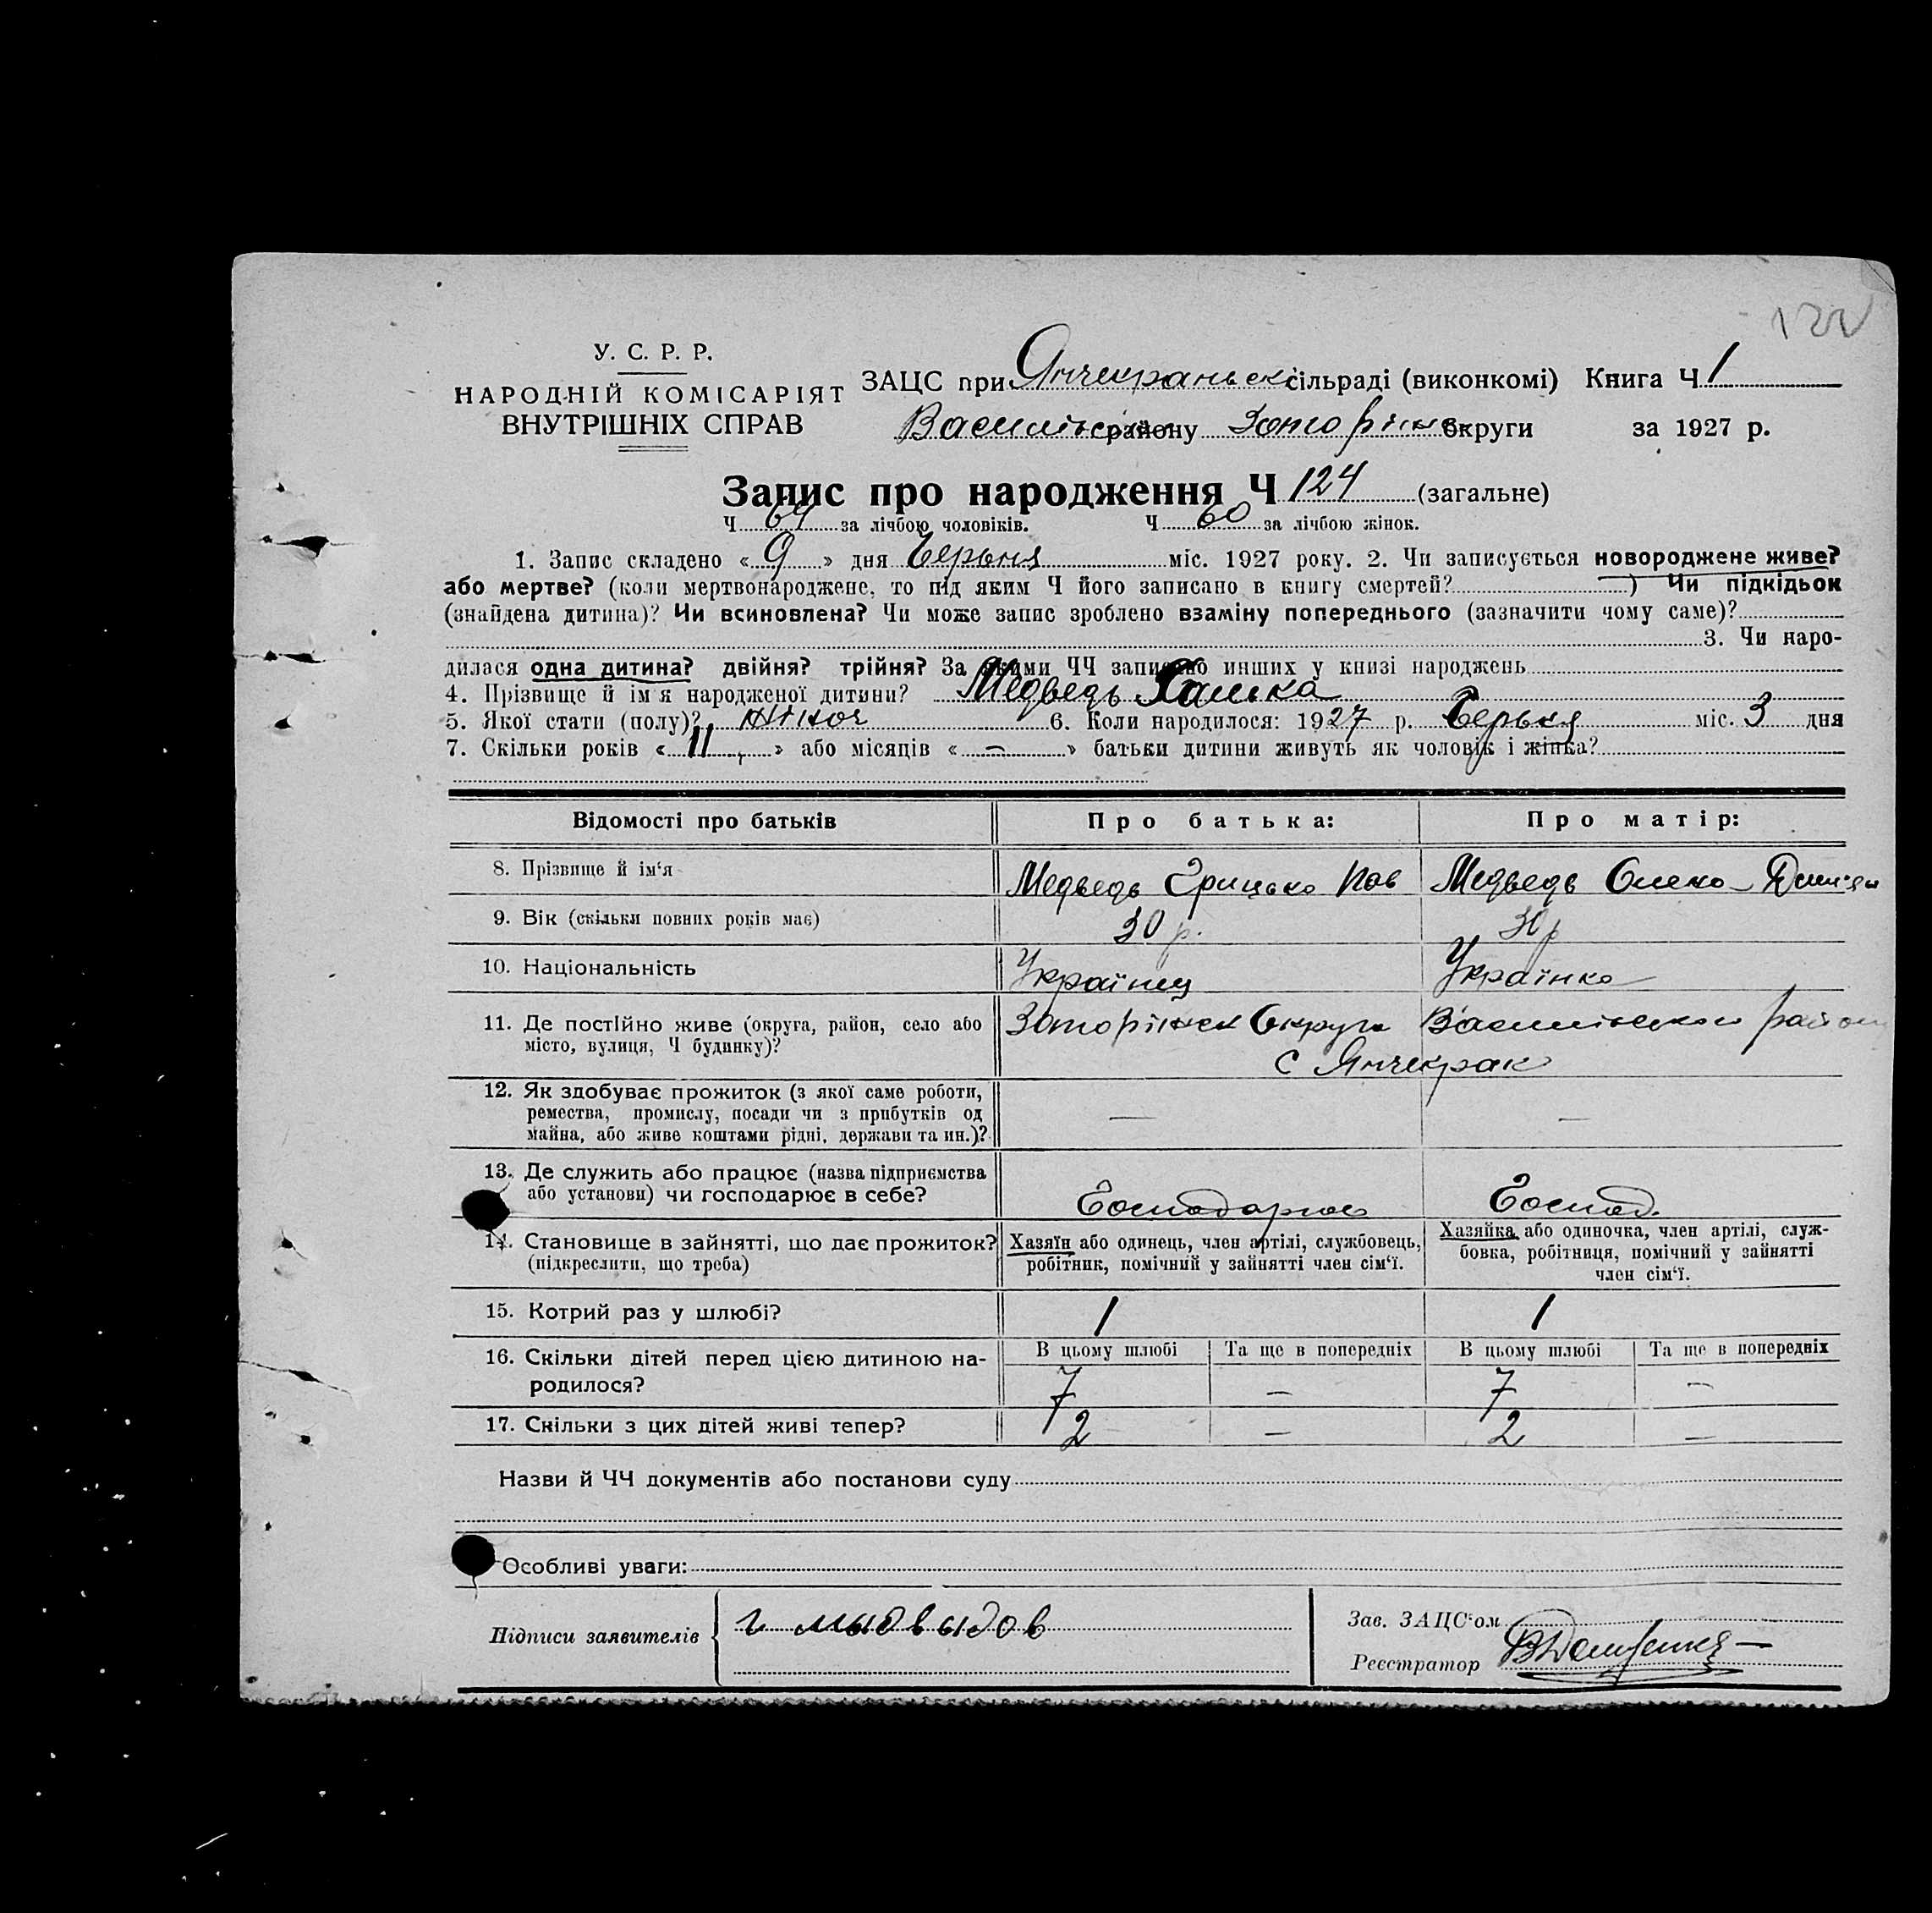 122
У. С. Р. Р.
НАРОДНІЙ КОМІСАРІЯТ
ВНУТРІШНІХ СПРАВ
ЗАЦС при Янчекраньскі сільраді (виконкомі) Книга Ч 1
Василівськ району Запоріжж округи за 1927 р.
Запис про народження Ч 124 (загальне)
Ч 64 за лічбою чоловіків. Ч 60 за лічбою жінок.
1. Запис складено « 9 » дня Червня міс. 1927 року. 2. Чи записується новороджене живе?
або мертве? (коли мертвонароджене, то під яким Ч його записано в книгу смертей? ) Чи підкідьок
(знайдена дитина)? Чи всиновлена? Чи може запис зроблено взаміну попереднього (зазначити чому саме)?
3. Чи наро-
дилася одна дитина? двійня? трійня? За якими ЧЧ записано инших у книзі народжень
4. Прізвище й ім'я народженої дитини? Медведь
5. Якої стати (полу)? жіноч 6. Коли народилося: 1927 р. Червня міс. 3 дня
7. Скільки років « 11 » або місяців « — » батьки дитини живуть як чоловік і жінка?
Відомості про батьків Про батька: Про матір:
8. Прізвище й ім'я Медведь Грицько Пав Медведь Олекс
9. Вік (скільки повних років має) 30 р. 30 р
10. Національність Українец Українка
11. Де постійно живе (округа, район, село або Запоріжск Округи Василівського район
місто, вулиця, Ч будинку)? с Янчекрак
12. Як здобуває прожиток (з якої саме роботи,
ремества, промислу, посади чи з прибутків од — —
майна, або живе коштами рідні, держави та ин.)?
13. Де служить або працює (назва підприємства
або установи) чи господарює в себе? Господарює Господ.
14. Становище в зайнятті, що дає прожиток? Хазяїн або одинець, член артілі, службовець, Хазяйка або одиночка, член артілі, служ-
(підкреслити, що треба) робітник, помічний у зайнятті член сім'ї. бовка, робітниця, помічний у зайнятті
член сім'ї.
15. Котрий раз у шлюбі? 1 1
В цьому шлюбі Та ще в попередніх В цьому шлюбі Та ще в попередніх
16. Скільки дітей перед цією дитиною на-
родилося? 7 — 7 —
17. Скільки з цих дітей живі тепер? 2 — 2 —
Назви й ЧЧ документів або постанови суду
Особливі уваги:
Підписи заявителів г мыдвыдов
Зав. ЗАЦС'ом
Реєстратор